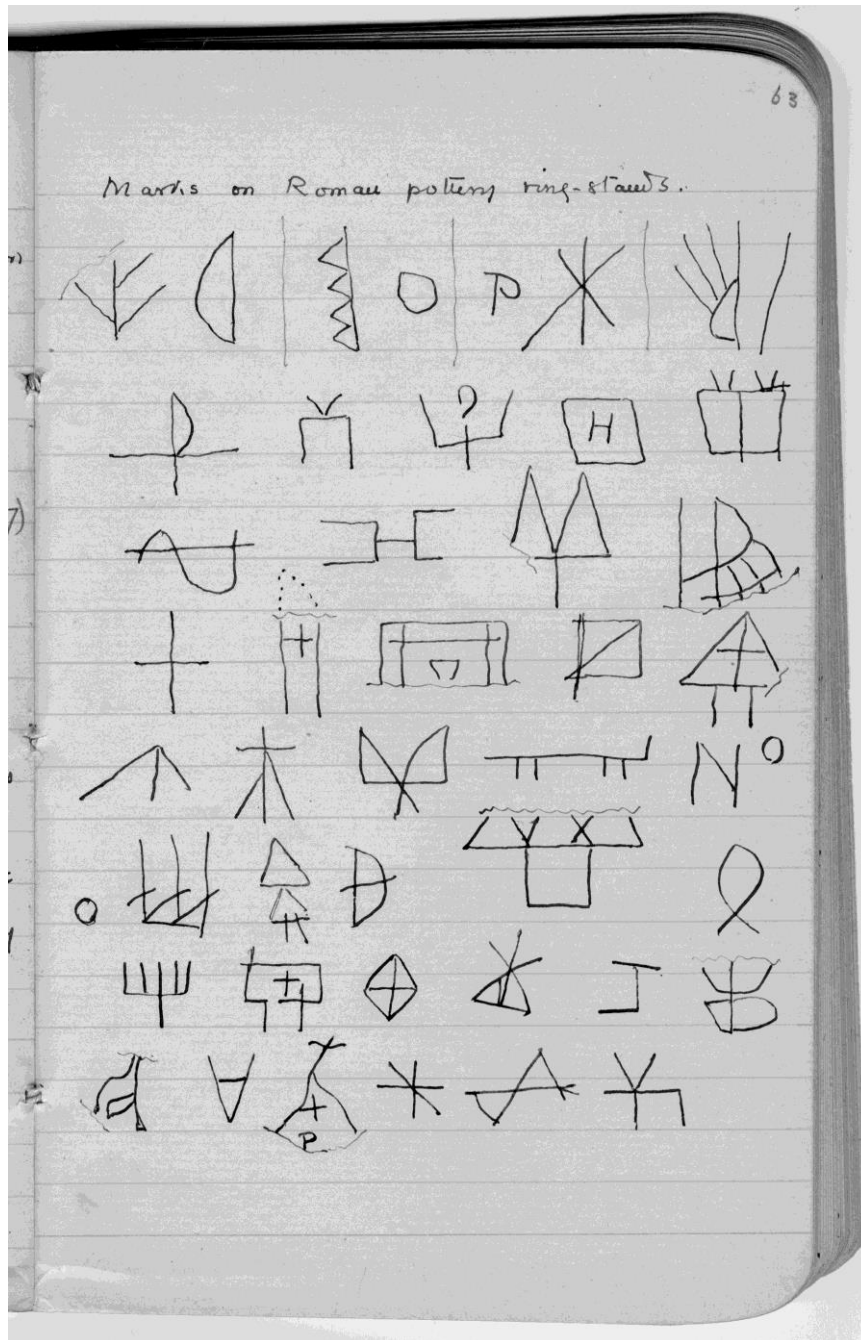 63
Marks on Roman pottery ring-stands.
O P
H
N O
O
P